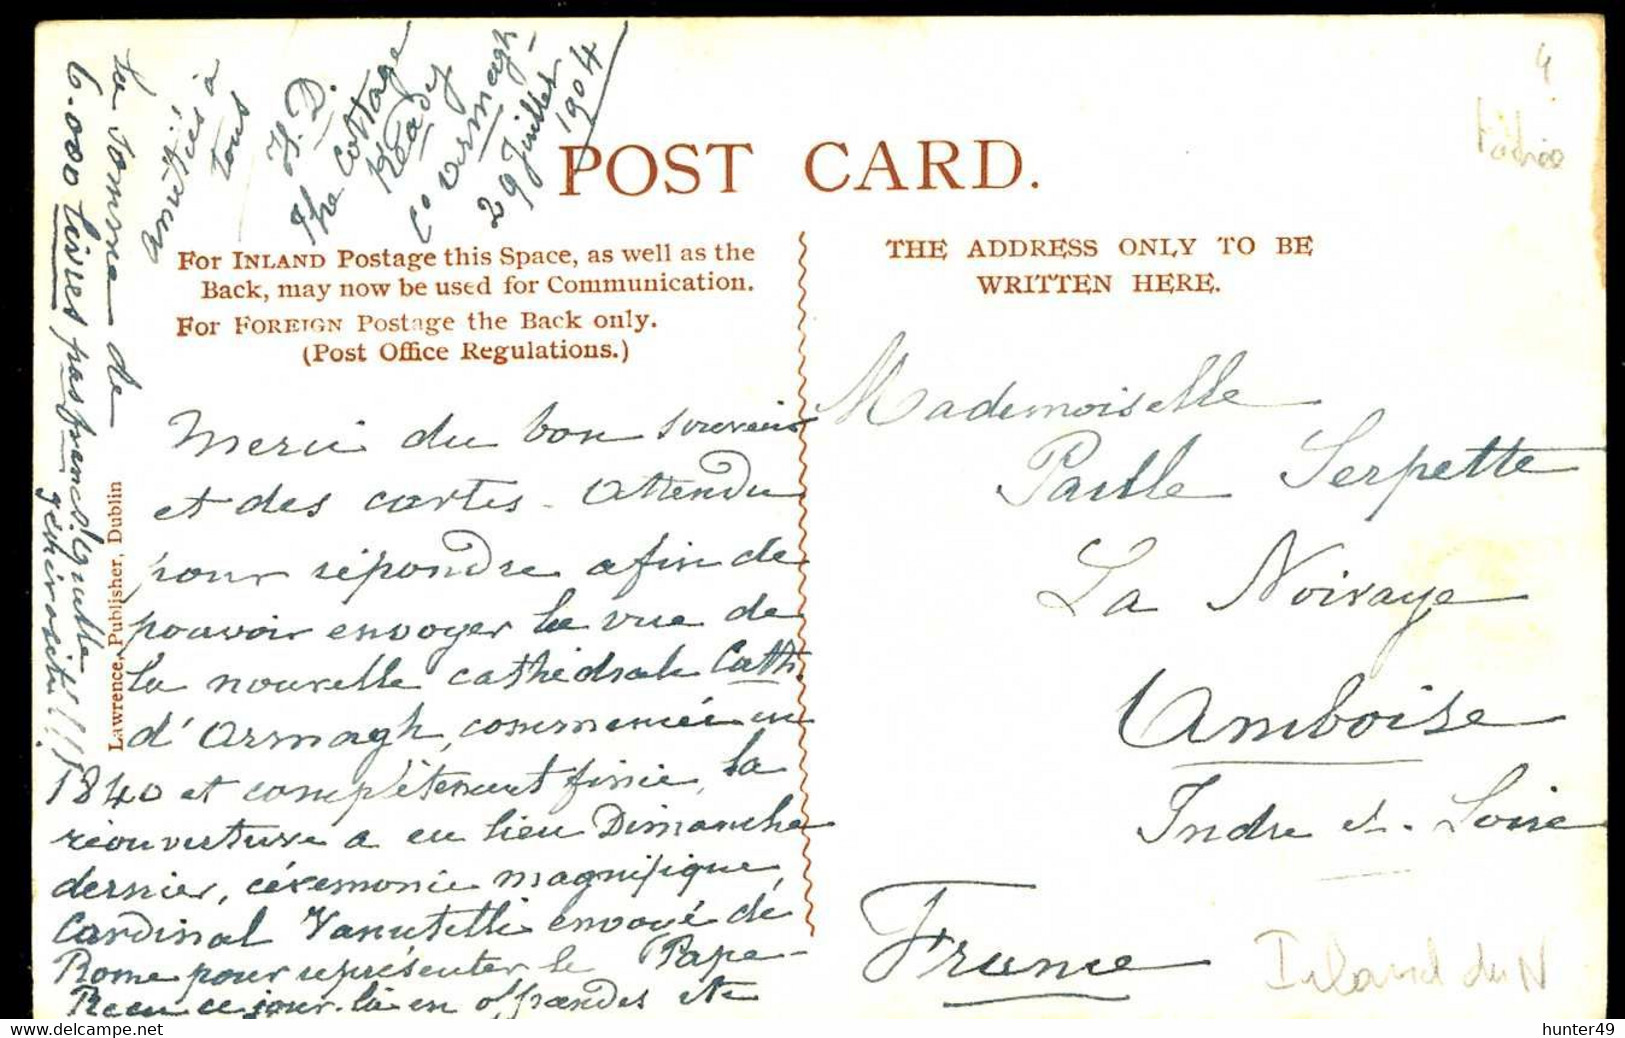 POST CARD.
For INLAND Postage this Space, as well as the
Back, may now be used for Communication.
For FOREIGN Postage the Back only.
(Post Office Regulations.)
THE ADDRESS ONLY TO BE
WRITTEN HERE.
Merci du bon souvenir
et des cartes - Attendu
pour répondre afin de
pouvoir envoyer la vue de
la nouvelle cathédrale Cath.
d'Armagh, commencée en
1840 et complètement finie, la
réouverture a eu lieu Dimanche
dernier, cérémonie magnifique,
Cardinal Vanutelli envoyé de
Rome pour représenter le Pape -
Reçu ce jour-là en offrandes etc
la somme de
6.000 livres, pas francs! Quelle
générosité!!!!
amitiés à
tous
H. D.
The Cottage
Keady
Co Armagh -
29 Juillet
1904
Lawrence, Publisher, Dublin
Mademoiselle
Paulle Serpette
La Noiraye
Amboise
Indre et - Loire
France
4
Irland du N
hunter49